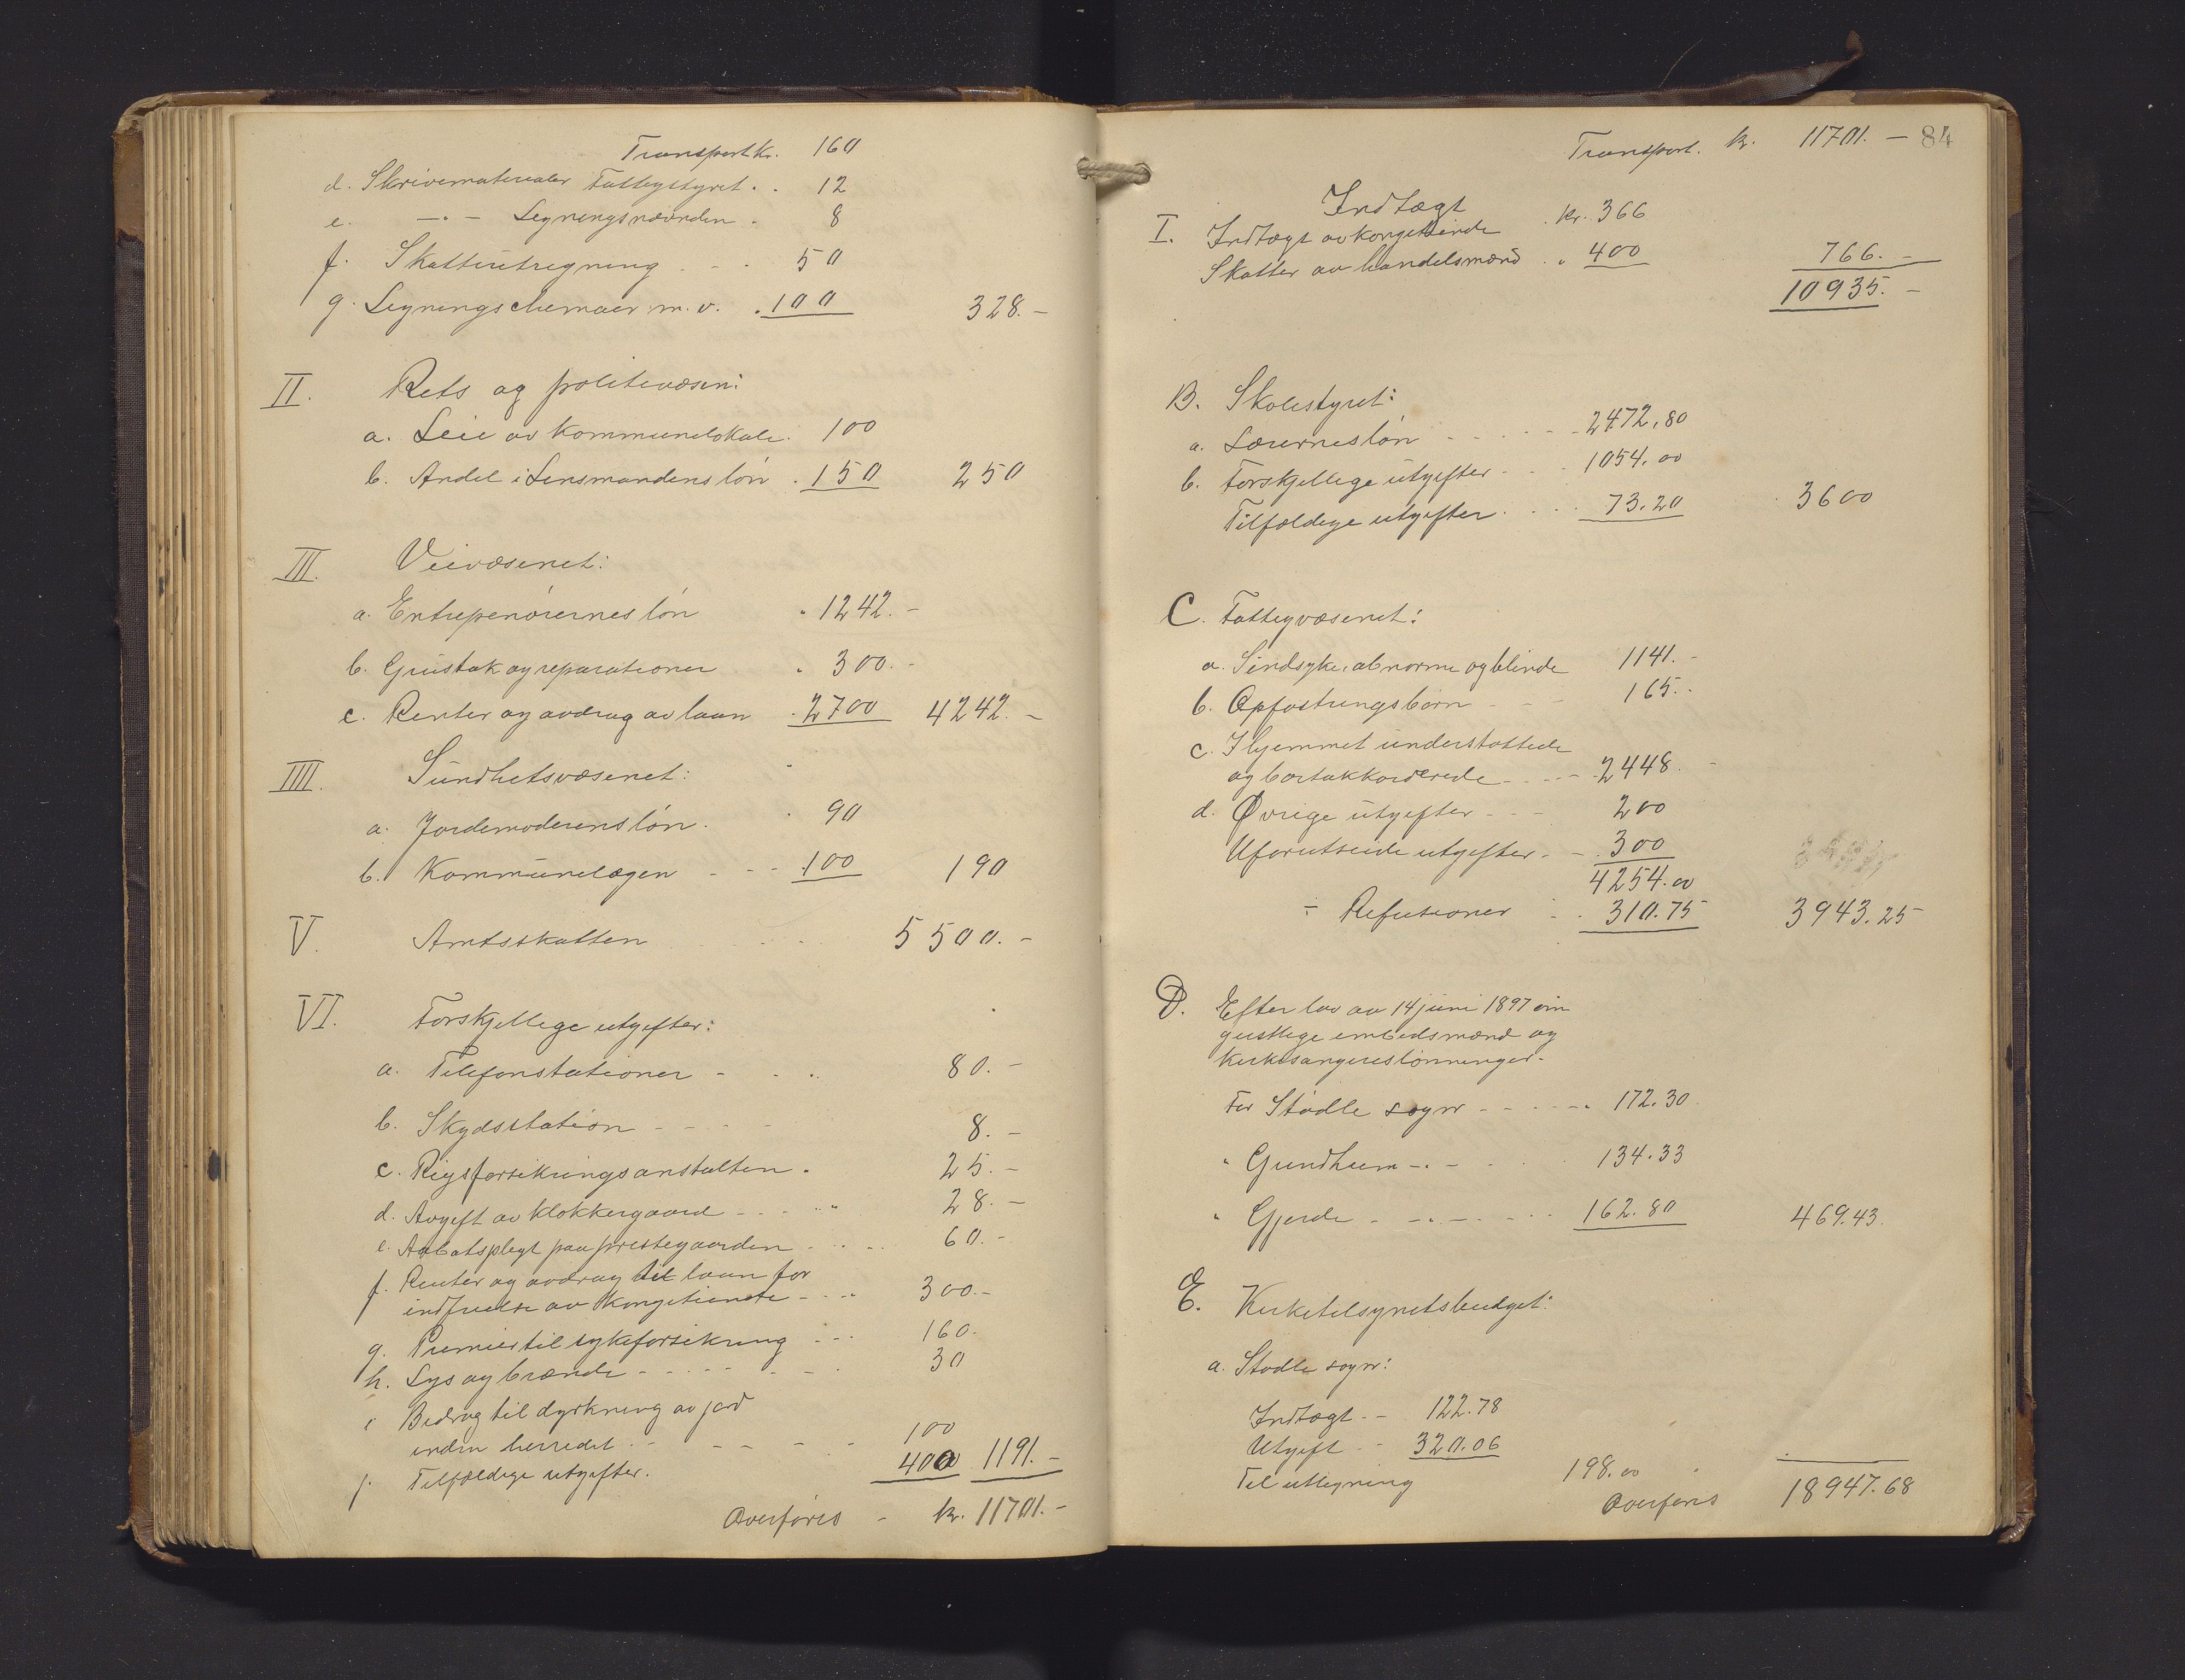 Transport kr. 160
d. Skrivematerialer Fattigstyret . . 12
e. -"- Ligningsnævnden . 8
f. Skatteutregning . - . 50
g. Ligningschemaer m. v. . 100 328.-
II. Rets og politivæsen:
a. Leie av kommunelokale. 100
b. Andel i Lensmandens løn . 150 250
III. Veivæsenet:
a. Entrepenørernes løn " 1242.-
b. Grustak og reparationer " 300.-
c. Renter og avdrag av laan . 2700 4242.-
IIII. Sundhetsvæsenet:
a. Jordemoderens løn. . 90
b. Kommunelægen - - - 100 190
V. Amtsskatten 5500.-
VI. Forskjellige utgifter:
a. Telefonstationer - - " 80.-
b. Skydsstation - - - - 8.-
c. Rigsforsikringsanstalten . 25.-
d. Avgift av klokkergaard - - - " 28.-
e. Aabotspligt paa prestegaarden . . . . 60.-
f. Renter og avdrag til laan for
indfrielse av Kongetiende - - " 300.-
g. Premier til sykeforsikring - - - 160.
h. Lys og brænde - - - - - - - 30
i Bidrag til dyrkning av jord
inden herredet . - - - - - 100
j. Tilfældige utgifter. 400 1191.-
Overføres - kr. 11701.-
Transport. kr. 11701. - 84
Indtægt
I. Indtægt av kongetiende . kr. 366
Skatter av handelsmænd . " 400 766.-
10935.-
B. Skolestyret:
a. Lærernes løn - - - - - 2472,80
b. Forskjellige utgifter - - - 1054.00
Tilfældige utgifter . . . . 73.20 3600
C. Fattigvæsenet:
a. Sindsyke, abnorme og blinde 1141.-
b. Opfostringsbørn - - - 165.-
c. I hjemmet understøttede
og bortakkorderede - - - - 2448.-
d. Øvrige utgifter - - - 200
Uforutseede utgifter. - 300
4254.00
÷ Refusioner - . 310.75 3943.25
D. Efter lov av 14 juni 1897 om
geistlige embedsmænd og
kirkesangereslønninger.
For Stødle sogn - - - - - " 172.30
" Grindheim -"- - . . 134.33
" Gjerde - -"- - - . . 162.80 469.43.
E. Kirketilsynetsbudget:
a. Stødle sogn:
Indtægt. - 122.78
Utgift - - 320.06
Til utligning 198.00
Overføres 18947.68